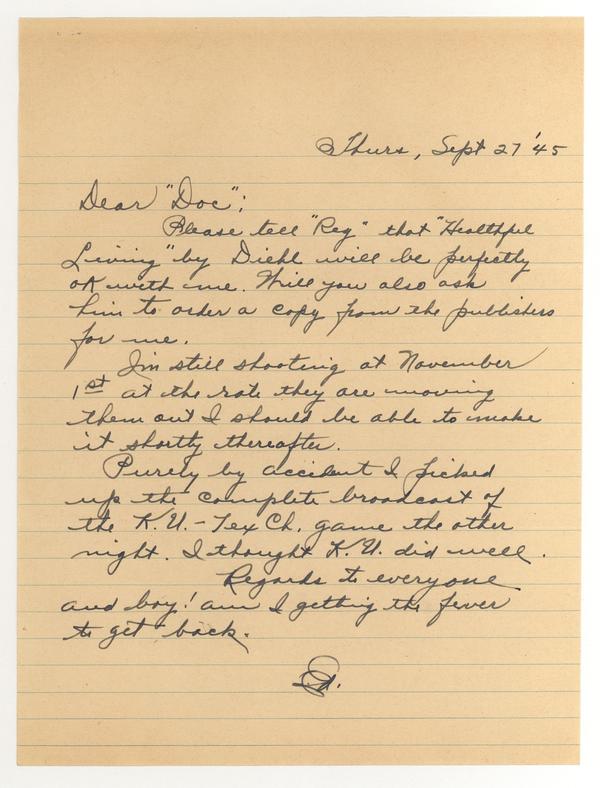 Thurs, Sept 27 '45
Dear "Doc":
Please tell "Reg" that "Healthful
Living" by Diehl will be perfectly
OK with me. Will you also ask
him to order a copy from the publishers
for me.
I'm still shooting at November
1st at the rate they are moving
them out I should be able to make
it shortly thereafter.
Purely by accident I picked
up the complete broadcast of
the K.U.-Tex Ch. game the other
night. I thought K.U. did well.
Regards to everyone
and boy! am I getting the fever
to get back.